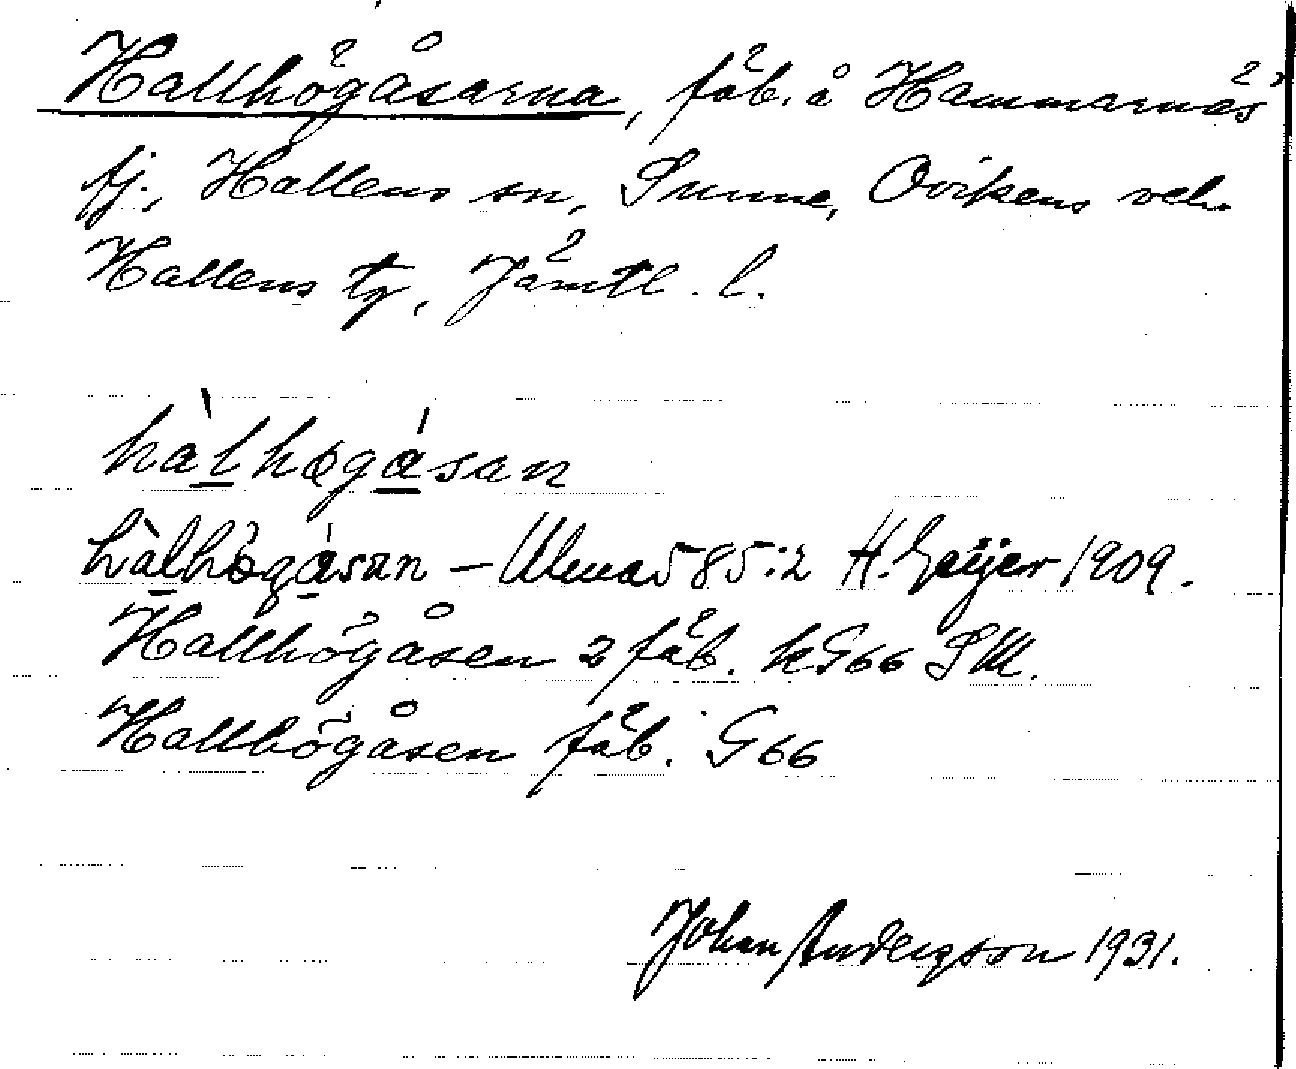 Hallhögåsarna, fäb. å Hammarnäs
fj., Hallens sn, Sunne, Ovikens och
Hallens tg, Jämtl. l.
hàlhøgásan
hàlhögásan – Ulma 585:2 H. Geijer 1909.
Hallhögåsen 2 fäb. kG66 SM.
Hallhögåsen fäb. G66
Johan Andersson 1931.